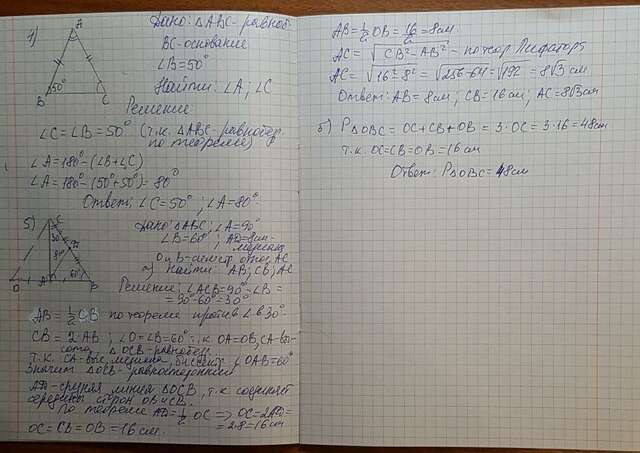 1)
A
50°
B
C
Дано: △ABC-равноб.
BC-основание
∠B=50°
Найти: ∠A; ∠C
Решение
∠C=∠B=50° (т.к. △ABC-равнобер.
по теореме)
∠A=180°-(∠B+∠C)
∠A=180°-(50°+50°)=80°
Ответ: ∠C=50°; ∠A=80°
5)
C
30°
8см
60°
O
A
B
Дано: △ABC; ∠A=90°
∠B=60°; AD=8см-
медиана
O и B-симет. относ. AC
а) Найти: AB; CB; AC
Решение: ∠ACB=90°-∠B=
=90°-60°=30°
AB=½CB по теореме против ∠ в 30°
CB=2AB; ∠O=∠B=60° т.к. OA=OB, CA-вы-
сота, △OCB-равнобед.
т.к. CA-выс, медиана, биссект.
Значит △OCB-равносторонний
AD-средняя линия △OCB, т.к. соединяет
середины сторон OB и CB.
По теореме AD=½ OC => OC=2AD=
=2·8=16см
OC=CB=OB=16см.
AB=½OB=16/2=8см
AC=√CB²-AB² - по теор Пифагора
AC=√16²-8²=√256-64=√192=8√3 см
Ответ: AB=8см; CB=16см; AC=8√3см
б) P△OBC=OC+CB+OB=3·OC=3·16=48см
т.к. OC=CB=OB=16см
Ответ: P△OBC=48см